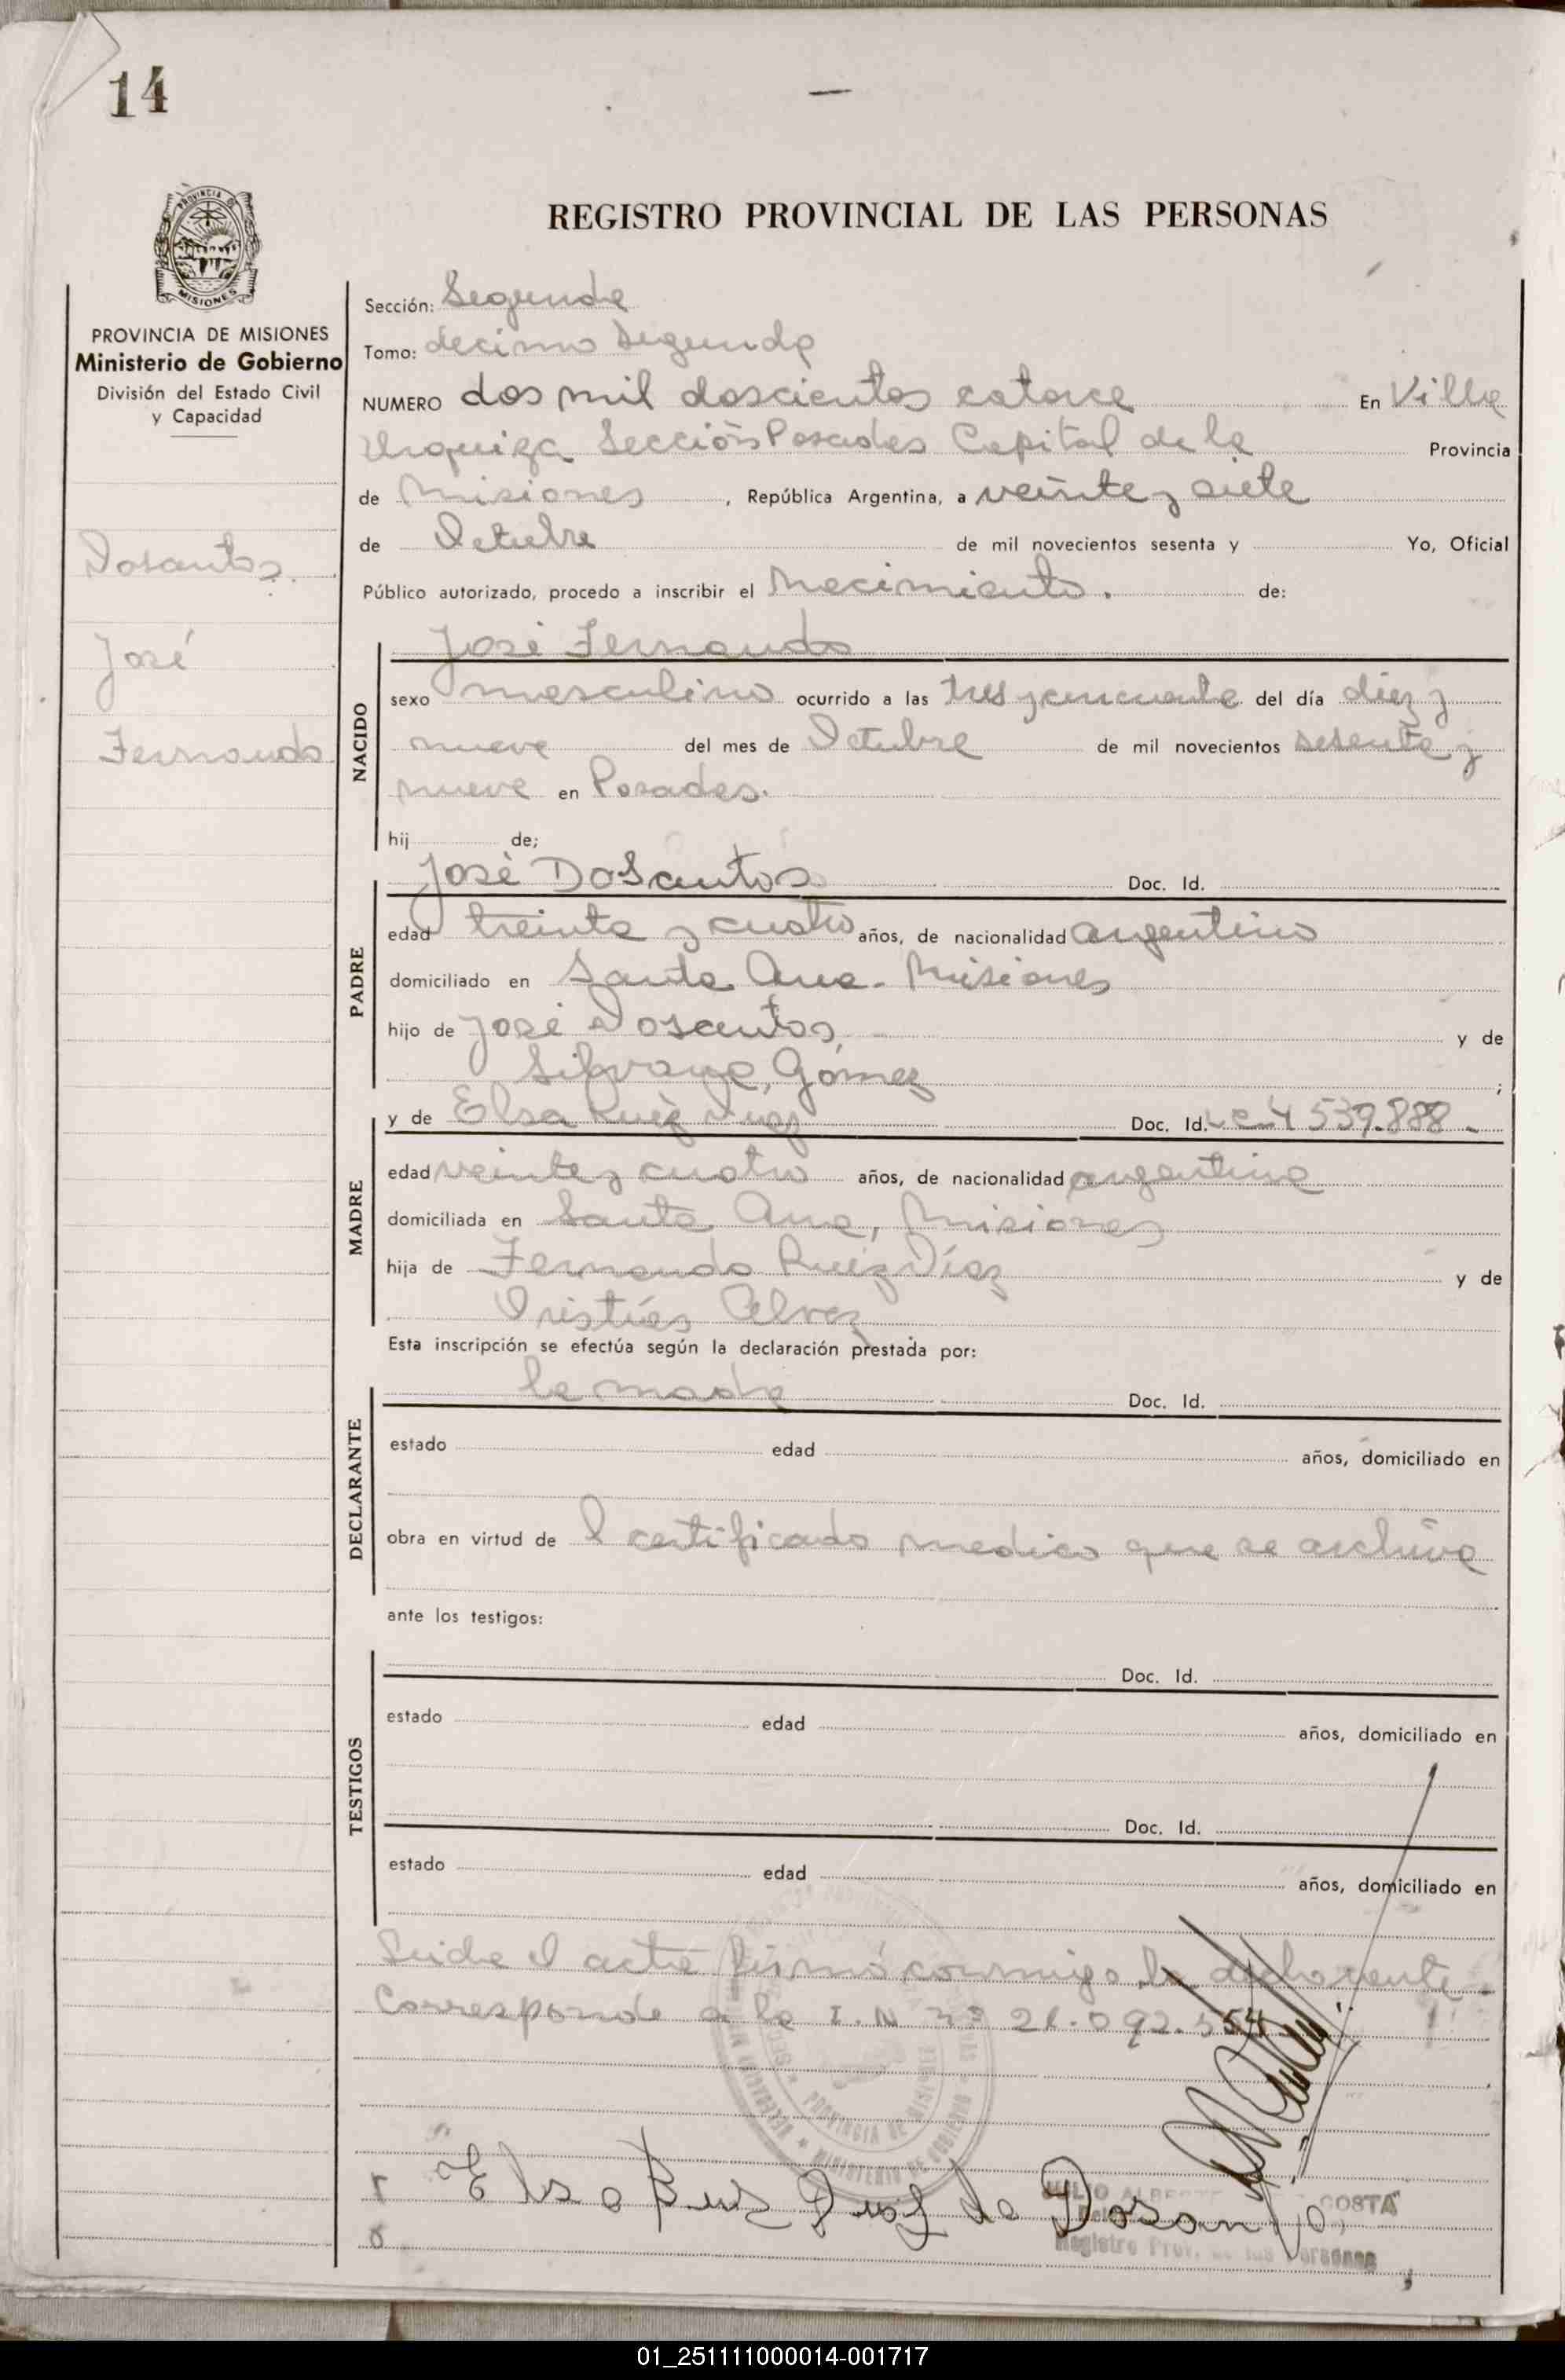 14
PROVINCIA DE
MISIONES
REGISTRO PROVINCIAL DE LAS PERSONAS
PROVINCIA DE MISIONES
Ministerio de Gobierno
División del Estado Civil
y Capacidad
Dosantos.
José
Fernando
Sección: Segunda
Tomo: decimo Segundo
NUMERO dos mil doscientos catorce En Villa
Urquiza Sección Posadas Capital de la Provincia
de Misiones, República Argentina, a veinte y siete
de Octubre de mil novecientos sesenta y Yo, Oficial
Público autorizado, procedo a inscribir el Nacimiento. de:
NACIDO
José Fernando
sexo masculino ocurrido a las tres y cincuenta del día diez y
nueve del mes de Octubre de mil novecientos sesenta y
nueve en Posadas.
hij de;
PADRE
José DoSantos Doc. Id.
edad treinta y cuatro años, de nacionalidad argentino
domiciliado en Santa Ana. Misiones
hijo de José Dosantos, y de
Silvana, Gómez ;
MADRE
y de Elsa Ruiz Diaz Doc. Id. L.C. 4 539.888.
edad veinte y cuatro años, de nacionalidad argentina
domiciliada en Santa Ana, Misiones
hija de Fernando Ruiz Díaz y de
Alvez
Esta inscripción se efectúa según la declaración prestada por:
DECLARANTE
la madre Doc. Id.
estado edad años, domiciliado en
obra en virtud de l certificado medico que se archiva
ante los testigos:
TESTIGOS
Doc. Id.
estado edad años, domiciliado en
Doc. Id.
estado edad años, domiciliado en
Leida el acta firmó conmigo la declarante.
Corresponde a la I. N nº 21.092.554
PROVINCIA DE MISIONES
MINISTERIO DE GOBIERNO
Elsa Ruiz Diaz de Dosantos
JULIO COSTA
Registro Prov. de las Personas
01_251111000014-001717